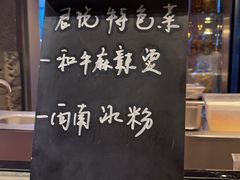 君悦特色菜
一和牛麻辣烫
一闽南冰粉